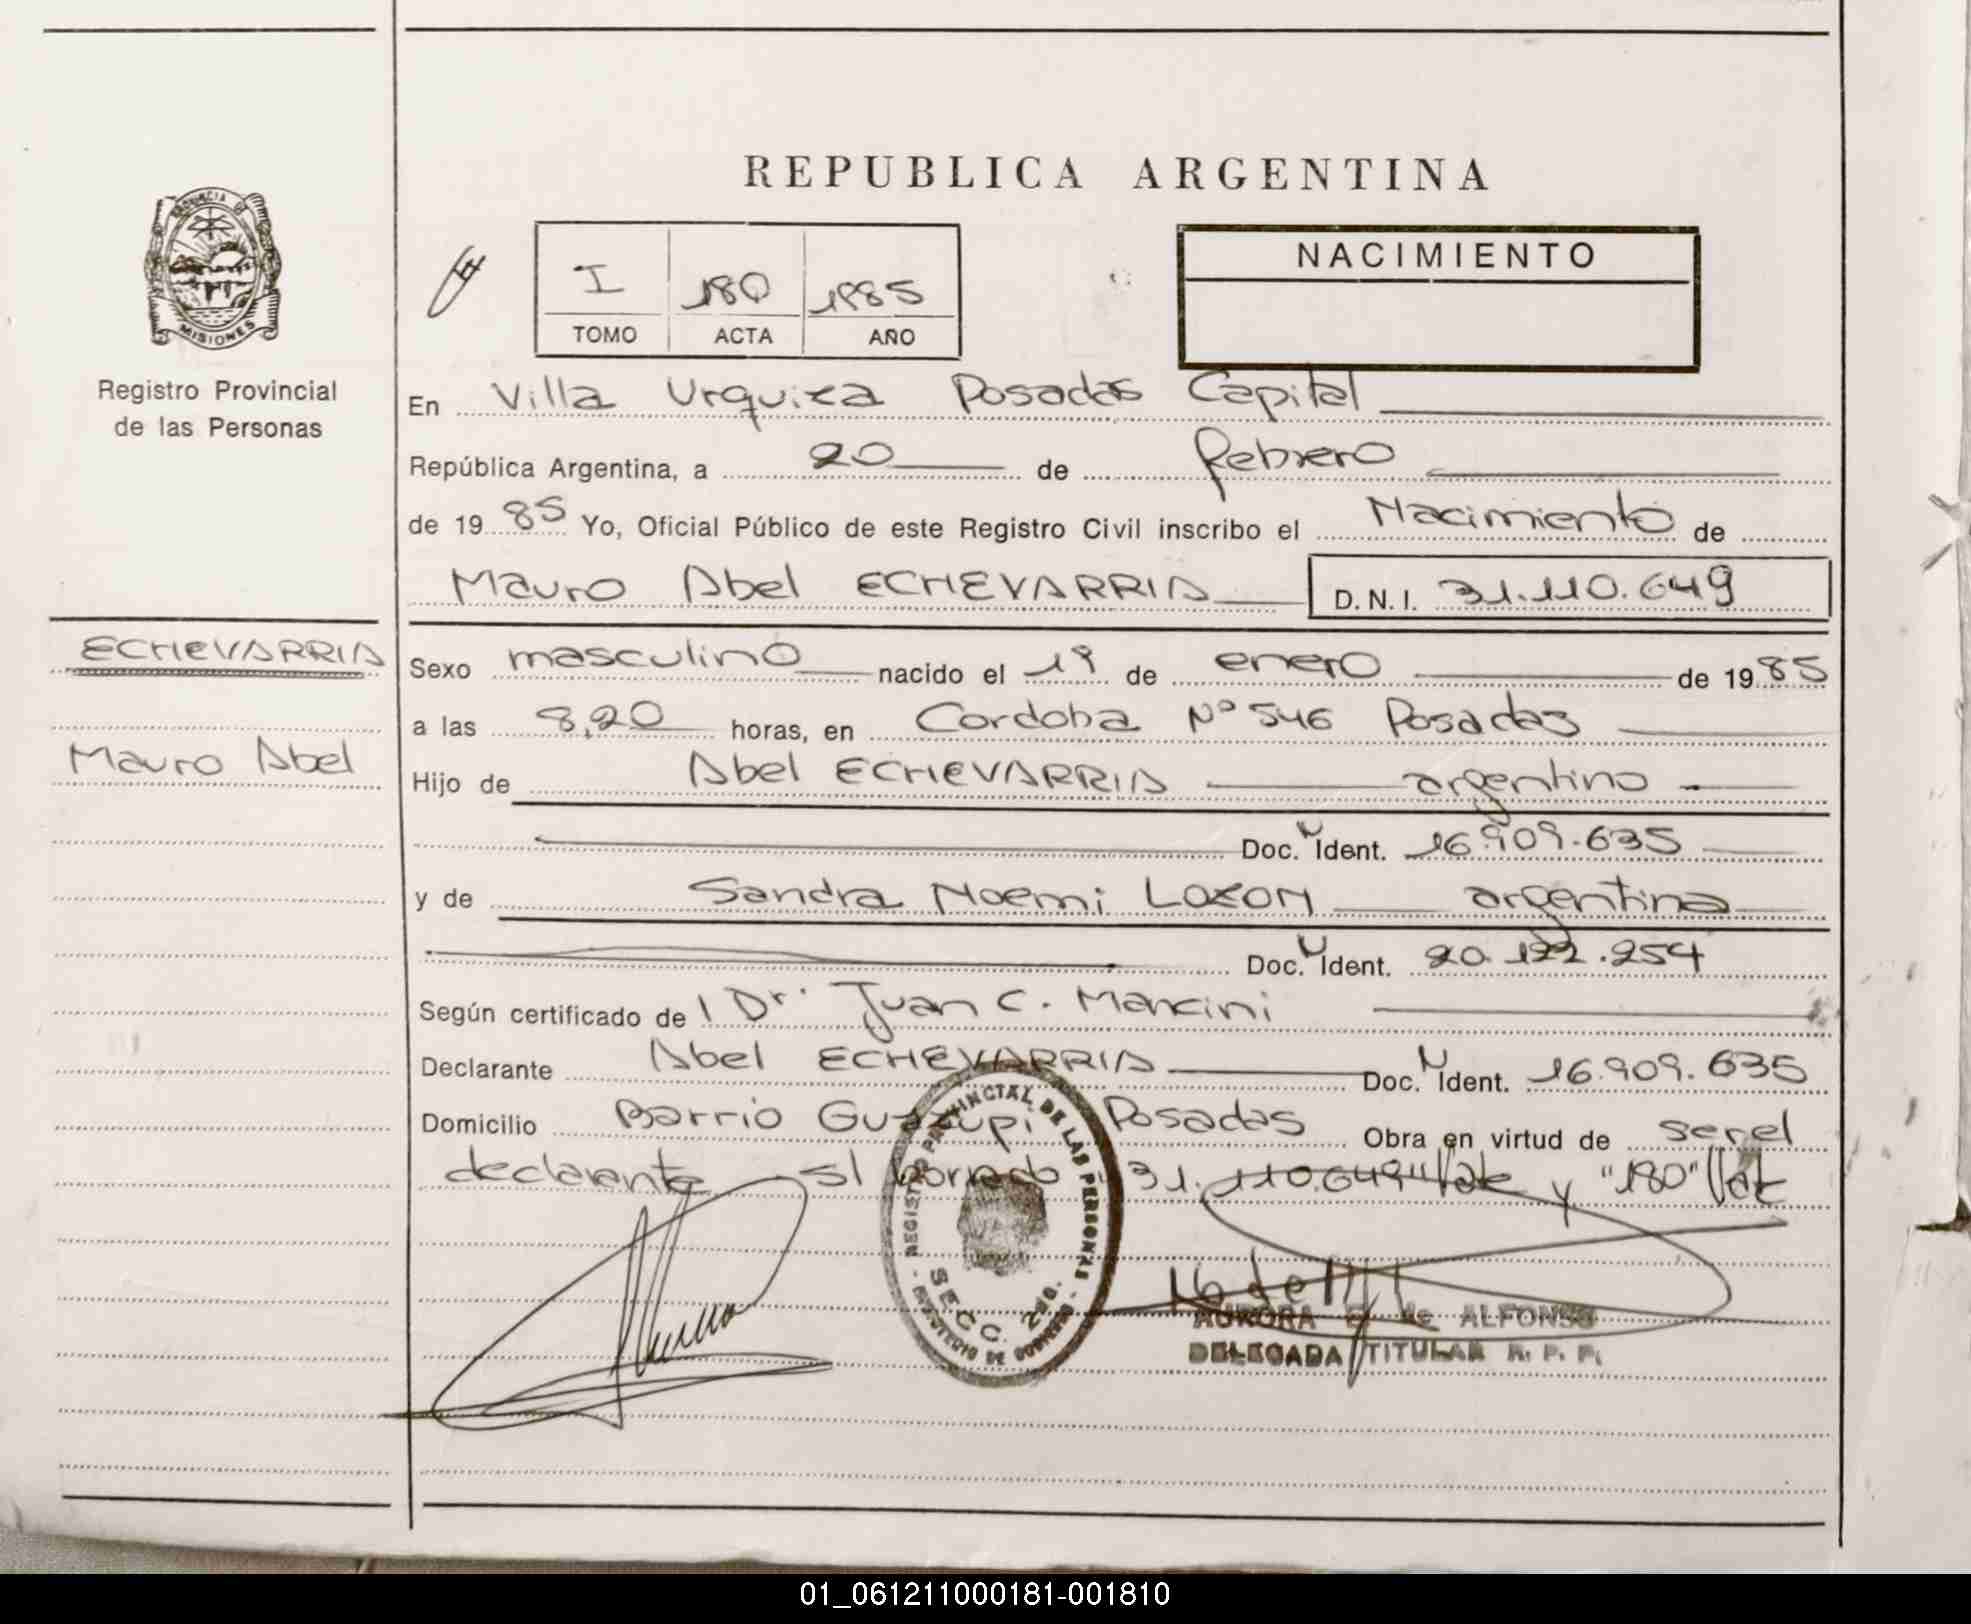 REPUBLICA ARGENTINA
PROVINCIA DE
MISIONES
Registro Provincial
de las Personas
I 180 1985
TOMO ACTA AÑO
NACIMIENTO
En Villa Urquiza Posadas Capital
República Argentina, a 20 de febrero
de 1985 Yo, Oficial Público de este Registro Civil inscribo el Nacimiento de
Mauro Abel ECHEVARRIA D.N.I. 31.110.649
ECHEVARRIA
Mauro Abel
Sexo masculino nacido el 1º de enero de 1985
a las 8,20 horas, en Cordoba Nº 546 Posadas
Hijo de Abel ECHEVARRIA argentino
Doc. N Ident. 16.909.635
y de Sandra Noemi LOZON argentina
Doc. N Ident. 20.122.254
Según certificado de l Dr. Juan C. Mancini
Declarante Abel ECHEVARRIA Doc. N Ident. 16.909.635
Domicilio Barrio Guazupi Posadas Obra en virtud de ser el
declarante s/ borrado 31.110.649" Vale y "180" Vale
REGISTRO PROVINCIAL DE LAS PERSONAS
SECC. 2da.
MINISTERIO DE GOBIERNO
AURORA de ALFONSO
DELEGADA TITULAR R. P. P.
01_061211000181-001810